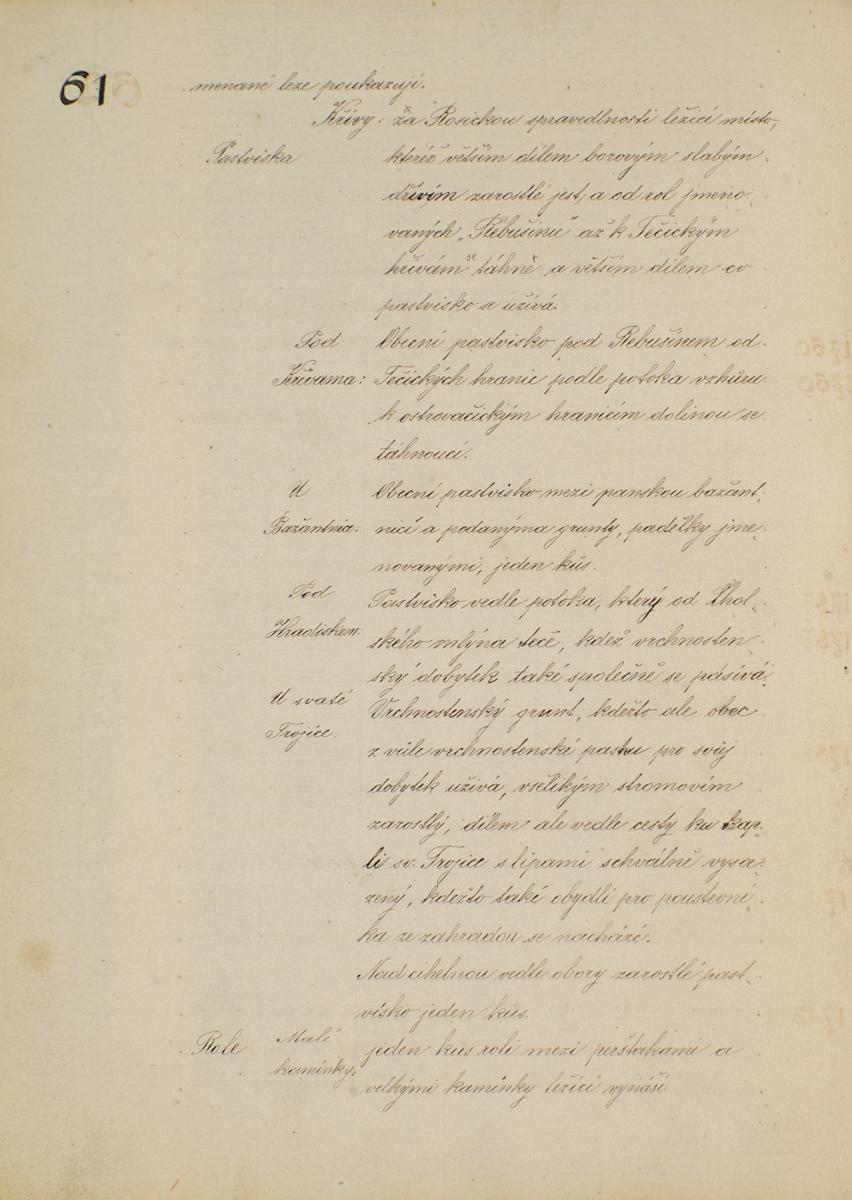 61
menané leze poukazují.
Křivy: za Rosickou spravedlnosti ležící místo,
Pastviska kteréž větším dílem borovým slabým
dřívím zarostlé jest, a od rol jmeno-
vaných „Řebušinu" až k Tečickým
hřivám táhne a větším dílem co
pastvisko se užívá.
Pod Obecní pastvisko pod Rebušinem od
Křivama: Tečických hranic podle potoka vzhůru
k ostrovačickým hranicím dolinou se
táhnoucí.
U Obecní pastvisko mezi panskou bažant-
Bažantnice: nicí a podanýma grunty, padělky jme-
novanými, jeden kus.
Pod Pastvisko vedle potoka, který od Lhot-
Hradiskem: ského mlýna teče, kdež vrchnosten-
ský dobytek také společně se pásívá.
U svaté Vrchnostenský grunt, kdežto ale obec
Trojice: z vůle vrchnostenské pastvu pro svůj
dobytek užívá, všelikým stromovím
zarostlý, dílem ale vedle cesty ku kap-
li sv. Trojice s lipami schválně vysa-
zený, kdežto také obydlí pro poustevní-
ka ze zahradou se nachází.
Nad cihelnou vedle obory zarostlé past-
visko jeden kus.
Role Malé jeden kus roli mezi perštakami a
kamínky: velkými kamínky ležící vynáší